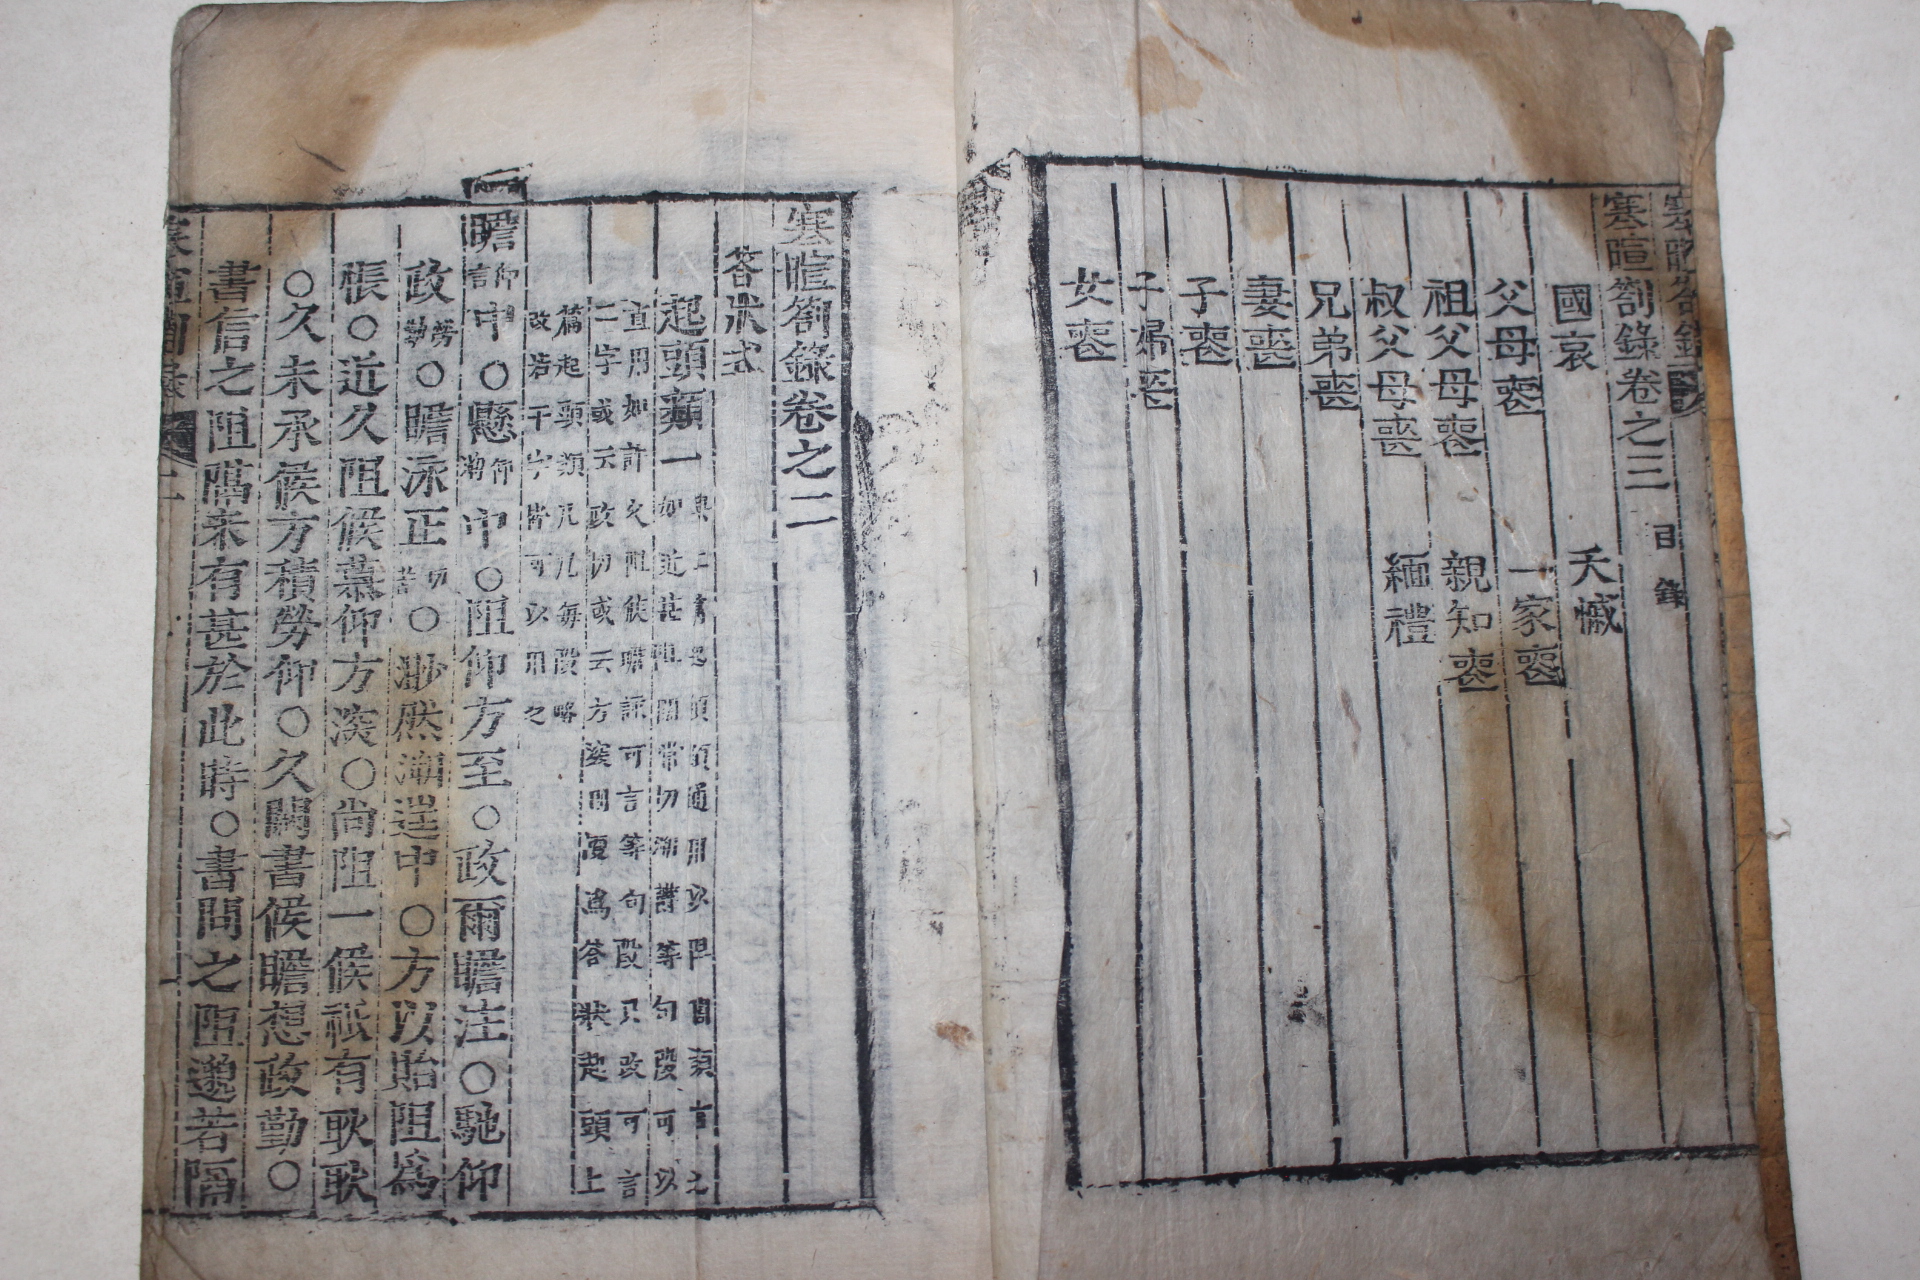 寒暄劄錄卷之三 目錄
國哀 夭慽
父母喪 一家喪
祖父母喪 親知喪
叔父母喪 緬禮
兄弟喪
妻喪
子喪
子婦喪
女喪
寒暄劄錄卷之二
答狀式
起頭類一
直用如許久阻餘瞻詠可言等句段只改可言
二字或云政切或云方深因復爲答狀起頭上
篇起頭類凡几每段略
改若干字皆可以用之
瞻仰中○懸仰中○阻仰方至○政爾瞻注○馳仰
政勞○瞻泳正切○渺然溯逞中○方以貽阻爲
悵○近久阻候慕仰方深○尙阻一候祗有耿耿
○久未承候方積勞仰○久闕書候瞻想政勤○
書信之阻隔未有甚於此時○書問之阻邈若隔